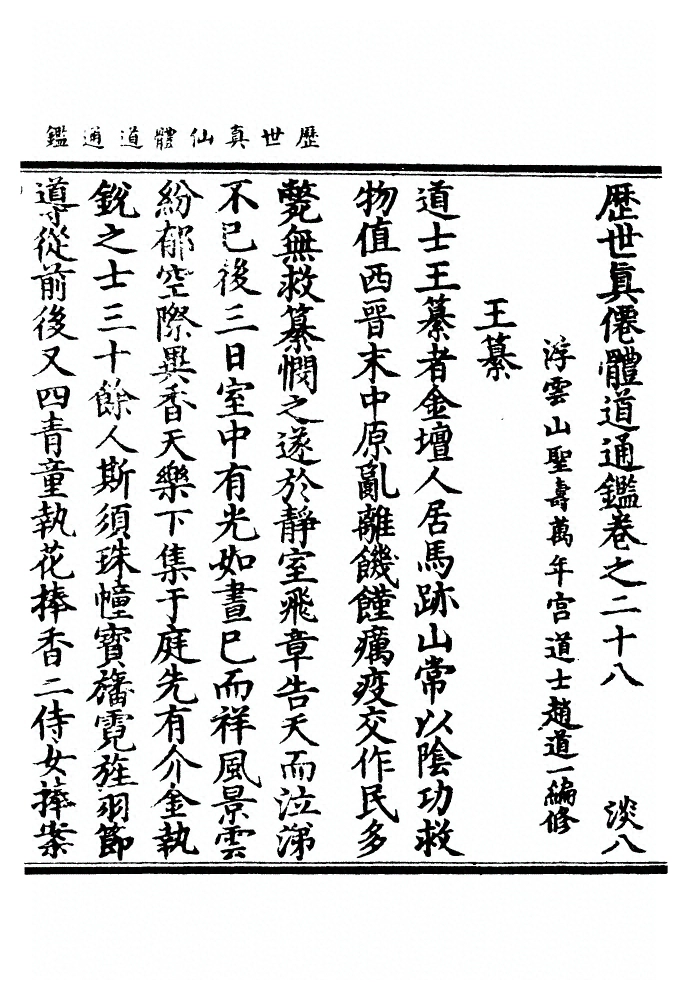 歷世真仙體道通鑑
歷世眞僊體道通鑑卷之二十八 淡八
浮雲山聖壽萬年宮道士趙道一編修
王纂
道士王纂者金壇人居馬跡山常以陰功救
物值西晉末中原亂離饑饉癘疫交作民多
斃無救纂憫之遂於靜室飛章告天而泣涕
不已後三日室中有光如晝已而祥風景雲
紛郁空際異香天樂下集于庭先有介金執
銳之士三十餘人斯須珠幢寶旛霓旌羽節
導從前後又四青童執花捧香二侍女捧案